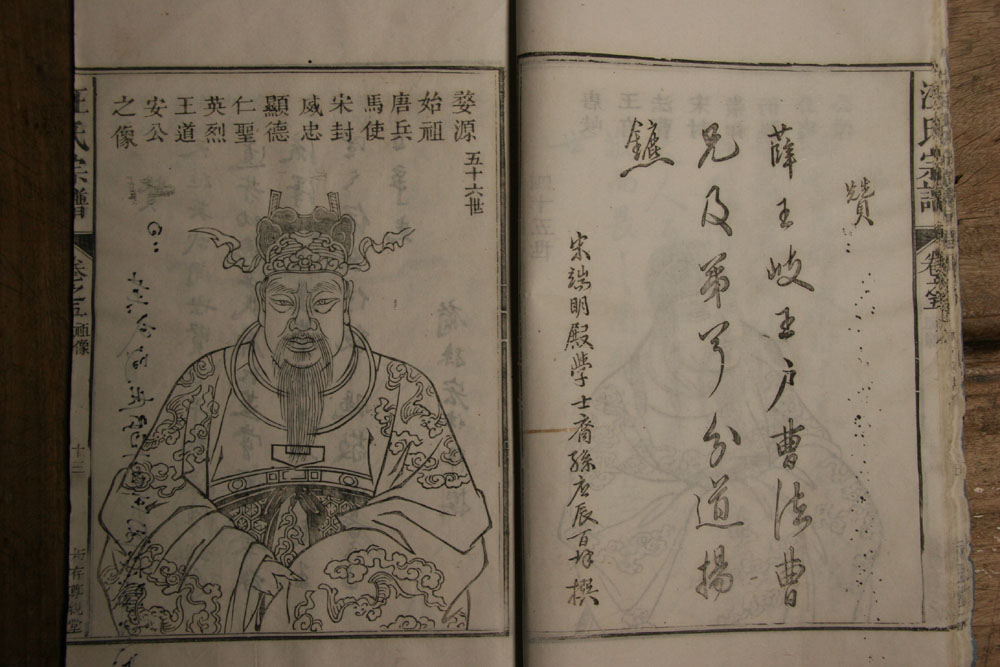 汪氏宗譜
薛王岐王戶曹法曹
兄及弟兮分道揚
鑣
宋端明殿學士裔孫应辰百拜撰
婺源
始祖
唐兵
馬使
宋封
威忠
顯德
仁聖
英烈
王道
安公
之像
五十六世
汪氏宗譜
卷之五
像